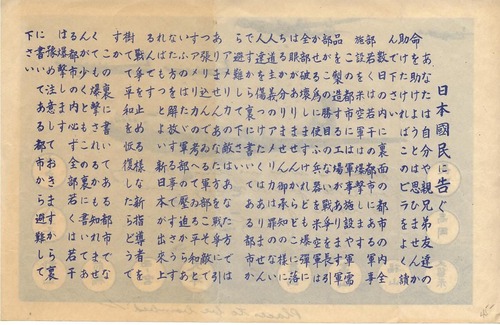 日本國民に告ぐ
あなたは自分や親兄弟友達の
命を助けようとは思ひませんか
助けたければこのビラをよく讀
んで下さい
数日の内に裏面の都市の内全
部若くは若干の都市にある軍事
施設を米空軍は爆撃します
この都市には軍事施設や軍需
品を製造する工場があります軍
部がこの勝目のない戰爭を長引
かせる為に使ふ兵器を米空軍は
全部破壊しますけれども爆弾に
は眼がありませんからどこに落
ちるか分りません御承知の様に
人道主義のアメリカは罪のない
人達を傷つけたくはありません
ですから裏に書いてある都市か
ら避難して下さい
アメリカの敵はあなた方ではあ
りませんあなた方を戰爭に引
っ張り込んでゐる軍部こそ敵で
すアメリカの考へてゐる平和と
いふのはたゞ軍部の壓迫からあ
なた方を解放する事ですさうす
ればもっとよい新日本が出來上
るんです
戰爭を止める様な新指導者を
樹てて平和を恢復したらどうで
すか
この裏に書いてある都市でなく
ても爆撃されるかも知れません
が少くともこの裏に書いてある
都市の内必ず全部若くは若干
は爆撃します
豫め注意しておきますから裏
に書いてある都市から避難して
下さい